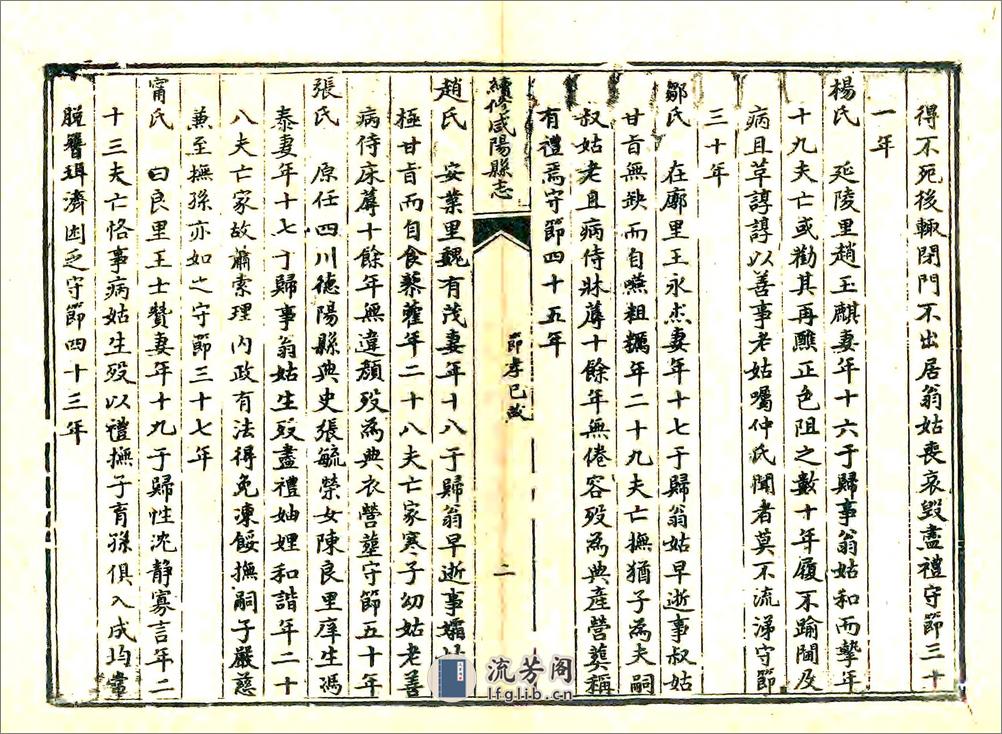 得不死後輙閉門不出居翁姑喪哀毀盡禮守節三十
一年
楊氏 延陵里趙玉麒妻年十六于歸事翁姑和而摯年
十九夫亡或勸其再醮正色阻之數十年履不踰閫及
病且草諄諄以善事老姑囑仲氏聞者莫不流涕守節
三十年
鄒氏 在廓里王永杰妻年十七于歸翁姑早逝事叔姑
甘旨無缺而自嚥粗糲年二十九夫亡撫猶子為夫嗣
叔姑老且病侍牀蓐十餘年無倦容歿為典產營葬稱
有禮焉守節四十五年
續修咸陽縣志
節孝已故
二
趙氏 安業里魏有茂妻年十八于歸翁早逝事孀姑
極甘旨而自食藜藿年二十八夫亡家寒子幼姑老善
病侍床蓐十餘年無違顏歿為典衣營塟守節五十年
張氏 原任四川德陽縣典史張毓榮女陳良里庠生馮
泰妻年十七于歸事翁姑生歿盡禮妯娌和諧年二十
八夫亡家故蕭索理內政有法得免凍餒撫嗣子嚴慈
兼至撫孫亦如之守節三十七年
甯氏 曰良里王士贊妻年十九于歸性沈静寡言年二
十三夫亡恪事病姑生歿以禮撫子育孫俱入成均常
脫簪珥濟困乏守節四十三年
流芳阁
lfglib.cn